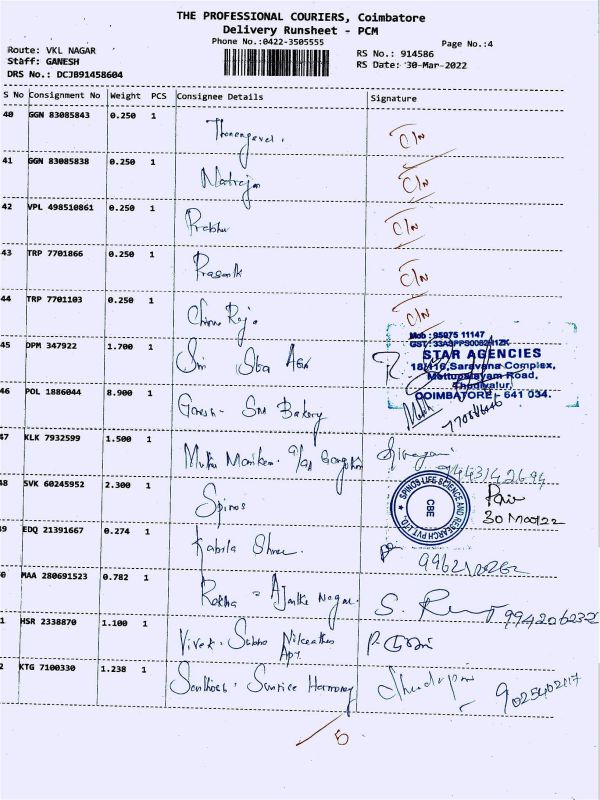 THE PROFESSIONAL COURIERS, Coimbatore
Delivery Runsheet - PCM
Phone No.:0422-3505555
Page No.:4
Route: VKL NAGAR
Staff: GANESH
DRS No.: DCJB91458604
RS No.: 914586
RS Date: 30-Mar-2022
S No Consignment No Weight PCS Consignee Details Signature
40 GGN 83085843 0.250 1 C/N
41 GGN 83085838 0.250 1 Natraja C/N
42 VPL 498510861 0.250 1 Prabhu C/N
43 TRP 7701866 0.250 1 Prasanth C/N
44 TRP 7701103 0.250 1 Chinna Raja C/N
Mob : 95975 11147
STAR AGENCIES
18/116, Saravana Complex,
Mettupalayam Road,
Thudiyalur,
COIMBATORE - 641 034.
45 DPM 347922 1.700 1 Sri Siba
46 POL 1886044 8.900 1 Ganesh - Sri Bakery
47 KLK 7932599 1.500 1 Muthu
48 SVK 60245952 2.300 1 Spinos
SPINOS LIFE SCIENCE AND RESEARCH PVT. LTD.
CBE
30 Mar 22
49 EDQ 21391667 0.274 1 Kabila Shree
0 MAA 280691523 0.782 1 Rekha - Ajantha Nagar
1 HSR 2338870 1.100 1 Vivek - Subha Apt
2 KTG 7100330 1.238 1 Santhosh - Sunrice Harmony 9025402117
5